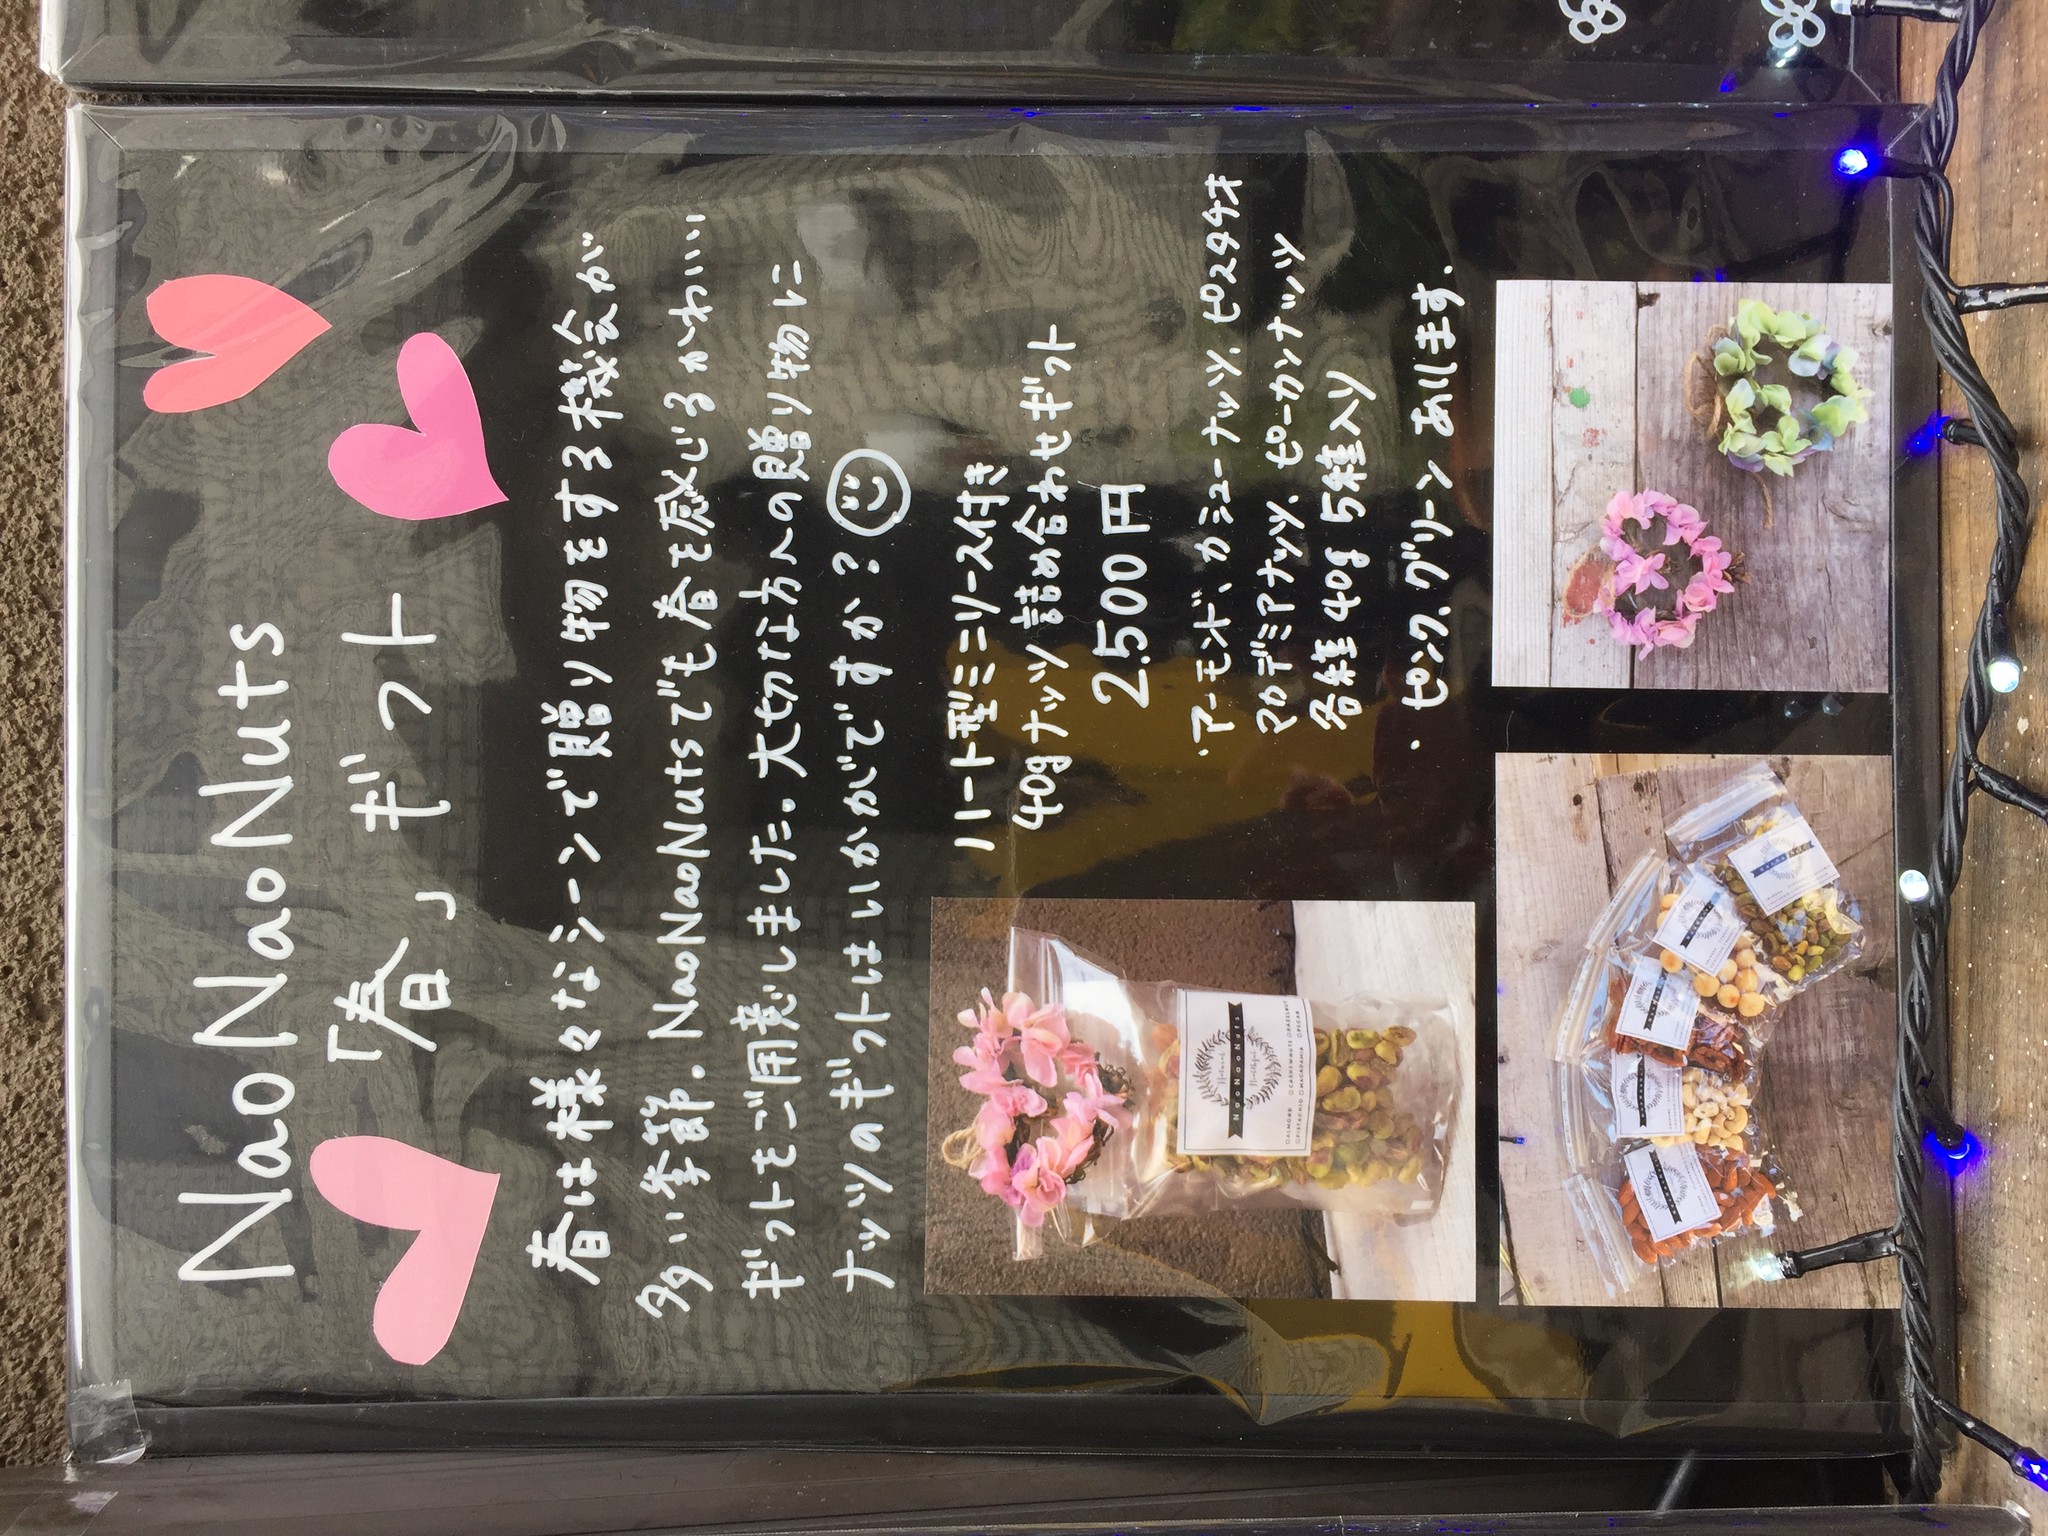 NaoNaoNuts
「春」ギフト
春は様々なシーンで贈り物をする機会が
多い季節。NaoNaoNutsでも春を感じるかわいい
ギフトをご用意しました。大切な方への贈り物に
ナッツのギフトはいかがですか?
ハート型ミニリース付き
40gナッツ詰め合わせギフト
2.500円
・アーモンド、カシューナッツ、ピスタチオ
マカデミアナッツ、ピーカンナッツ
各種40g 5種入り
・ピンク、グリーン あります.
NaoNaoNuts